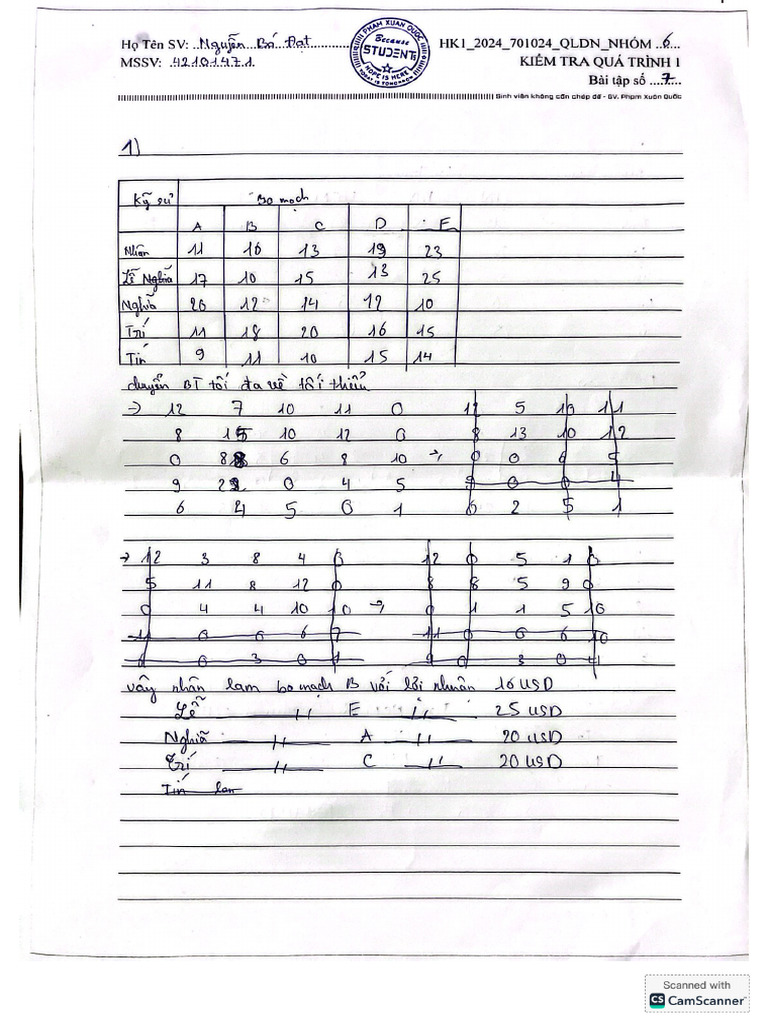 Họ Tên SV: Nguyễn Bá Đạt
MSSV: 42101471
PHAM XUAN QUOC
Because
STUDENTS
HOPE IS HERE
TODAY IS TOMORROW
HK1_2024_701024_QLDN_NHÓM 6
KIỂM TRA QUÁ TRÌNH 1
Bài tập số 7
Sinh viên không cần chép đề - GV. Phạm Xuân Quốc
1)
Kỹ sư Bo mạch
A B C D E
Nhân 11 16 13 19 23
Lễ Nghĩa 17 10 15 13 25
Nghĩa 20 12 14 12 10
Trí 11 18 20 16 15
Tín 9 11 10 15 14
chuyển BT tối đa về tối thiểu
→ 12 7 10 11 0 12 5 10 11
8 15 10 12 0 8 13 10 12
0 8 6 8 10 → 0 0 6
9 2 0 4 5 9 0 0 4
6 4 5 0 1 6 2 5 1
→ 12 3 8 4 0 12 0 5 1 0
5 11 8 12 0 8 8 5 9 0
0 4 4 10 10 → 0 1 1 5 10
11 0 0 6 7 11 0 0 6 10
0 3 0 1 9 0 3 0 4
vậy nhân làm bo mạch B với lợi nhuận 16 USD
Lễ " E " 25 USD
Nghĩa " A " 20 USD
Trí " C " 20 USD
Tín làm
Scanned with
CS CamScanner